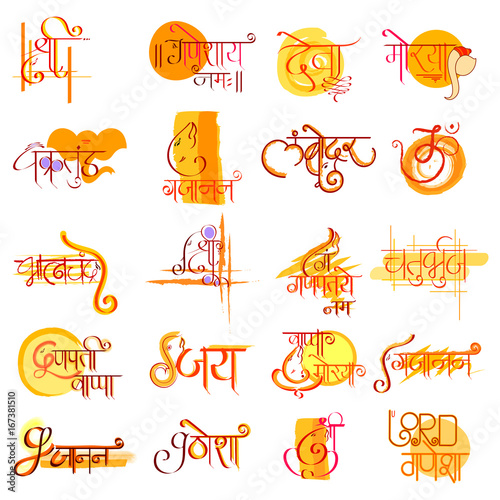 श्री
॥ गणेशाय
नमः॥
देवा
मोरया
वक्रतुंड
गजानन
लंबोदर
ॐ
भालचंद्र
श्री
गं
गणपतये
नम
चतुर्भुज
गणपती
बाप्पा
जय
बाप्पा
मोरया
गजानन
गजानन
गणेशा
श्री
LORD
गणेशा
Adobe Stock | #167381510